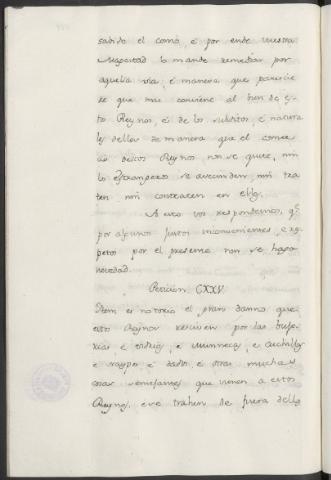 sabido el como, e por ende vuestra
Magestad lo mande remediar por
aquella via, e manera que parecie
se que mas conviene al bien de es-
to Reynos, e de los subditos e natura
les dellos de manera que el comer
cio destos Reynos non se quite, nin
los Estrangeros se avecinden nin tra
ten nin contraten en ellos.
A esto vos respondemos, q.e
por algunos justos inconvenientes, e rs
petos por el presente non se haga
novedad.
Peticion CXXV
Item es notorio el gran danno que
estos Reynos reciven por las buje-
rias e vidrios, e Munnecas, e Cuchillos
e naypes e dados, e otras muchas
cosas semejantes que vienen a estos
Reynos, e se trahen de fuera dellos